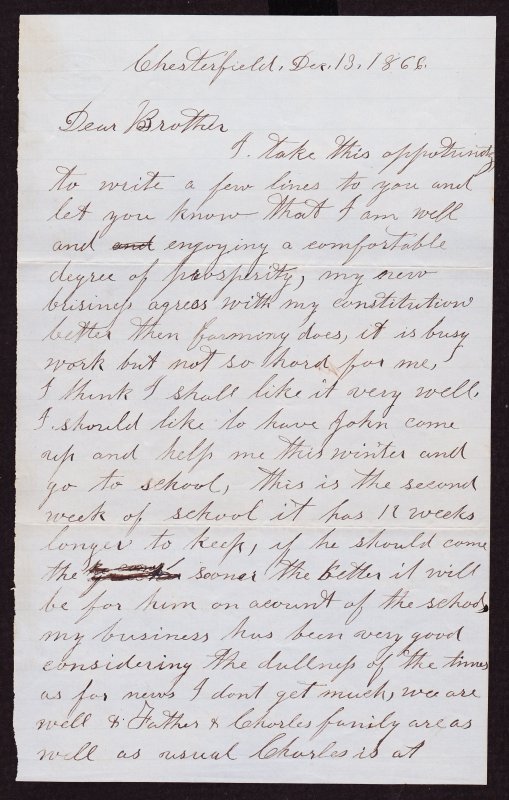 Chesterfield, Dec. 13, 1866.
Dear Brother
I take this oppotrunity
to write a few lines to you and
let you know that I am well
and and engoying a comfortable
degree of prosperity, my new
brisiness agress with my constitution
better then farming does, it is busy
work but not so hard for me,
I think I shall like it very well.
I should like to have John come
up and help me this winter and
go to school, this is the second
week of school it has 11 weeks
longer to keep, if he should come
the sooner the better it will
be for him on acount of the school,
my business has been very good
considering the dullness of the times
as for news I dont get much, wee are
well & Father & Charles family are as
well as usual Charles is at